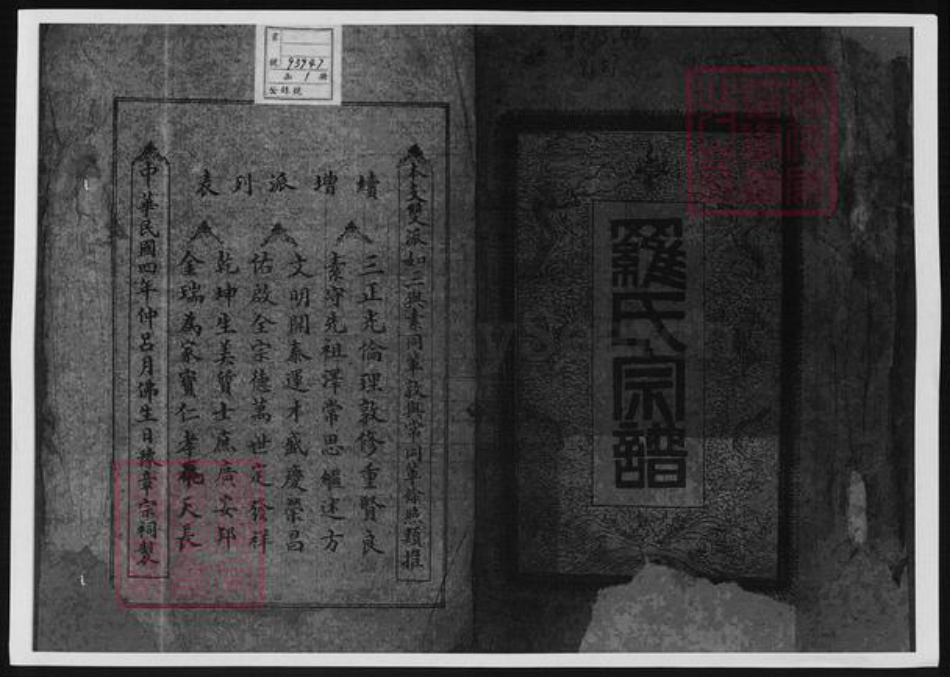 羅氏宗譜
本支雙派如三與素同輩敦與常同輩餘照類推
續增派列表
三正光倫理敦修重賢良
素守先祖澤常思繼述方
文明開泰運才盛慶榮昌
佑啟全宗德萬世定發祥
乾坤生美質士庶廣安邦
金瑞為家寶仁孝 天長
中華民國四年仲呂月佛生日豫章宗祠製
號 93947
函 1 冊
登錄號